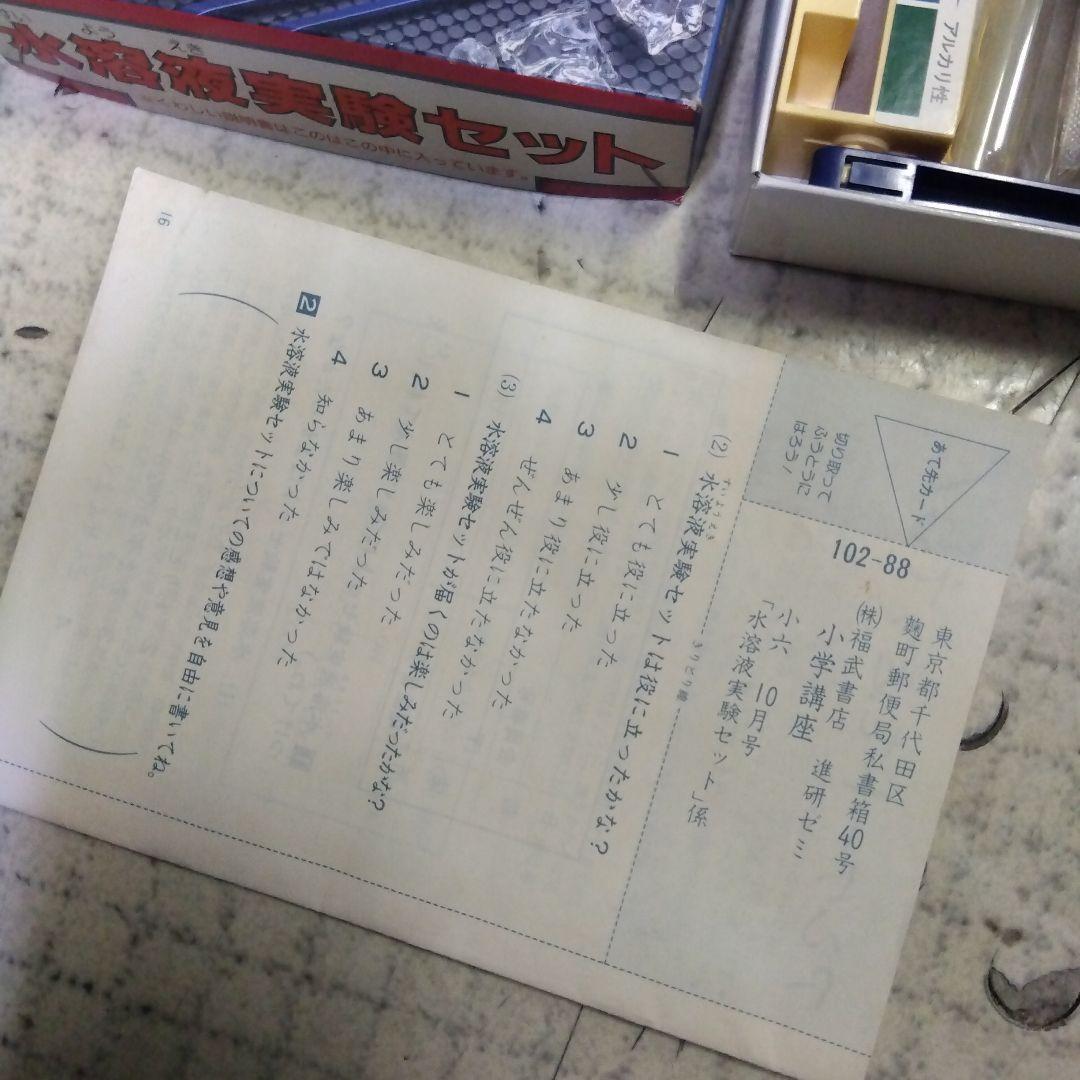 水溶液実験セット
よう えき
※くわしい説明書はこのはこの中に入っています。
アルカリ性
あて先カード
切り取って
ふうとうに
はろう！
102-88
東京都千代田区
麴町郵便局私書箱40号
(株)福武書店 進研ゼミ
小学講座
小六 10月号
「水溶液実験セット」係
きりとり線
すいようえき
(2) 水溶液実験セットは役に立ったかな？
1 とても役に立った
2 少し役に立った
3 あまり役に立った
4 ぜんぜん役に立たなかった
(3) 水溶液実験セットが届くのは楽しみだったかな？
1 とても楽しみだった
2 少し楽しみだった
3 あまり楽しみではなかった
4 知らなかった
2 水溶液実験セットについての感想や意見を自由に書いてね。
16